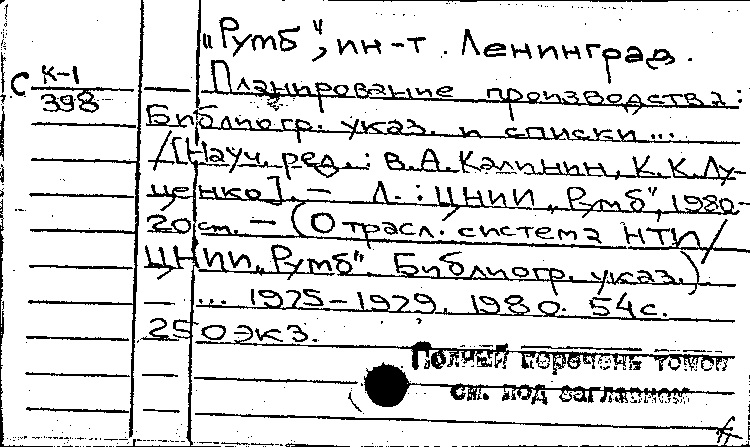 "Румб", ин-т. Ленинград.
С К-1
398
Планирование производства:
Библиогр. указ. и списки...
/[Науч. ред.: В.А. Калинин, К.К. Лу-
ценко]. – Л.: ЦНИИ „Румб", 1980-
20 см. – (Отрасл. система НТИ/
ЦНИИ „Румб". Библиогр. указ.)
... 1975–1979. 1980. 54 с.
250 экз.
Полный перечень томов
см. под заглавием